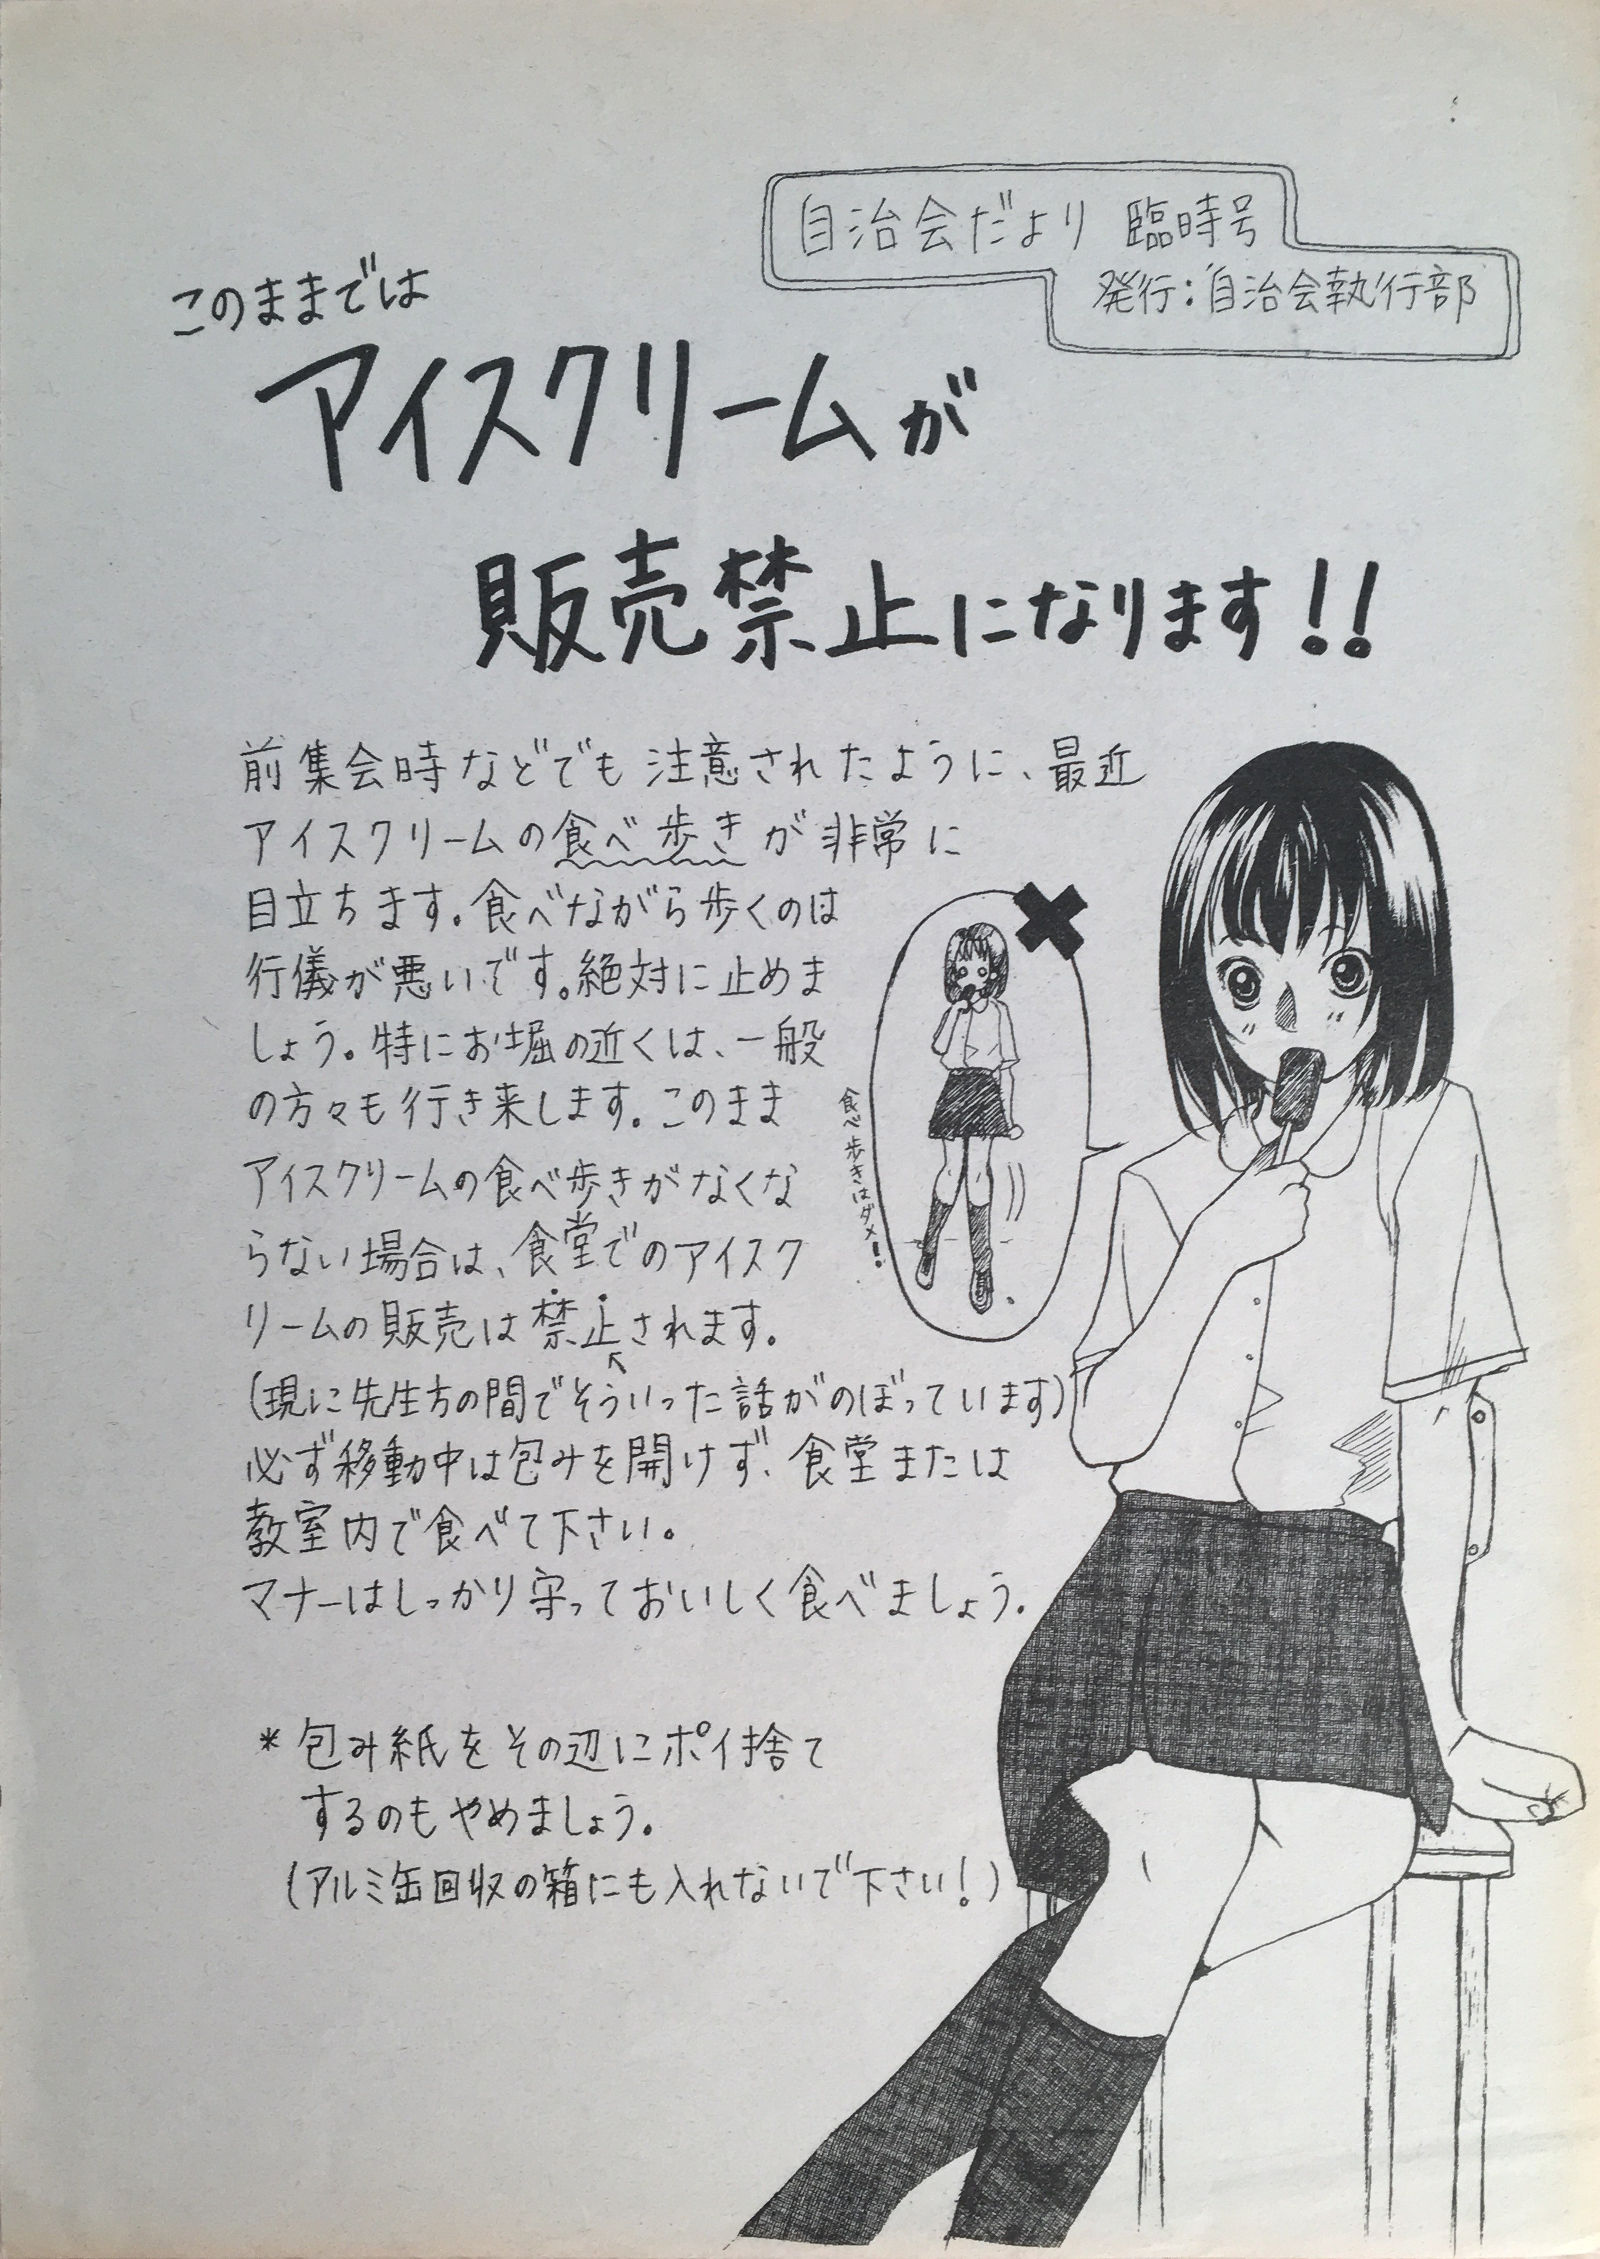 自治会だより 臨時号
発行：自治会執行部
このままでは
アイスクリームが
販売禁止になります!!
前集会時などでも注意されたように、最近
アイスクリームの食べ歩きが非常に
目立ちます。食べながら歩くのは
行儀が悪いです。絶対に止めま
しょう。特にお堀の近くは、一般
の方々も行き来します。このまま
アイスクリームの食べ歩きがなくな
らない場合は、食堂でのアイスク
リームの販売は禁止されます。
(現に先生方の間でそういった話がのぼっています)
必ず移動中は包みを開けず、食堂または
教室内で食べて下さい。
マナーはしっかり守っておいしく食べましょう。
食べ歩きはダメ!
* 包み紙をその辺にポイ捨て
するのもやめましょう。
(アルミ缶回収の箱にも入れないで下さい!)